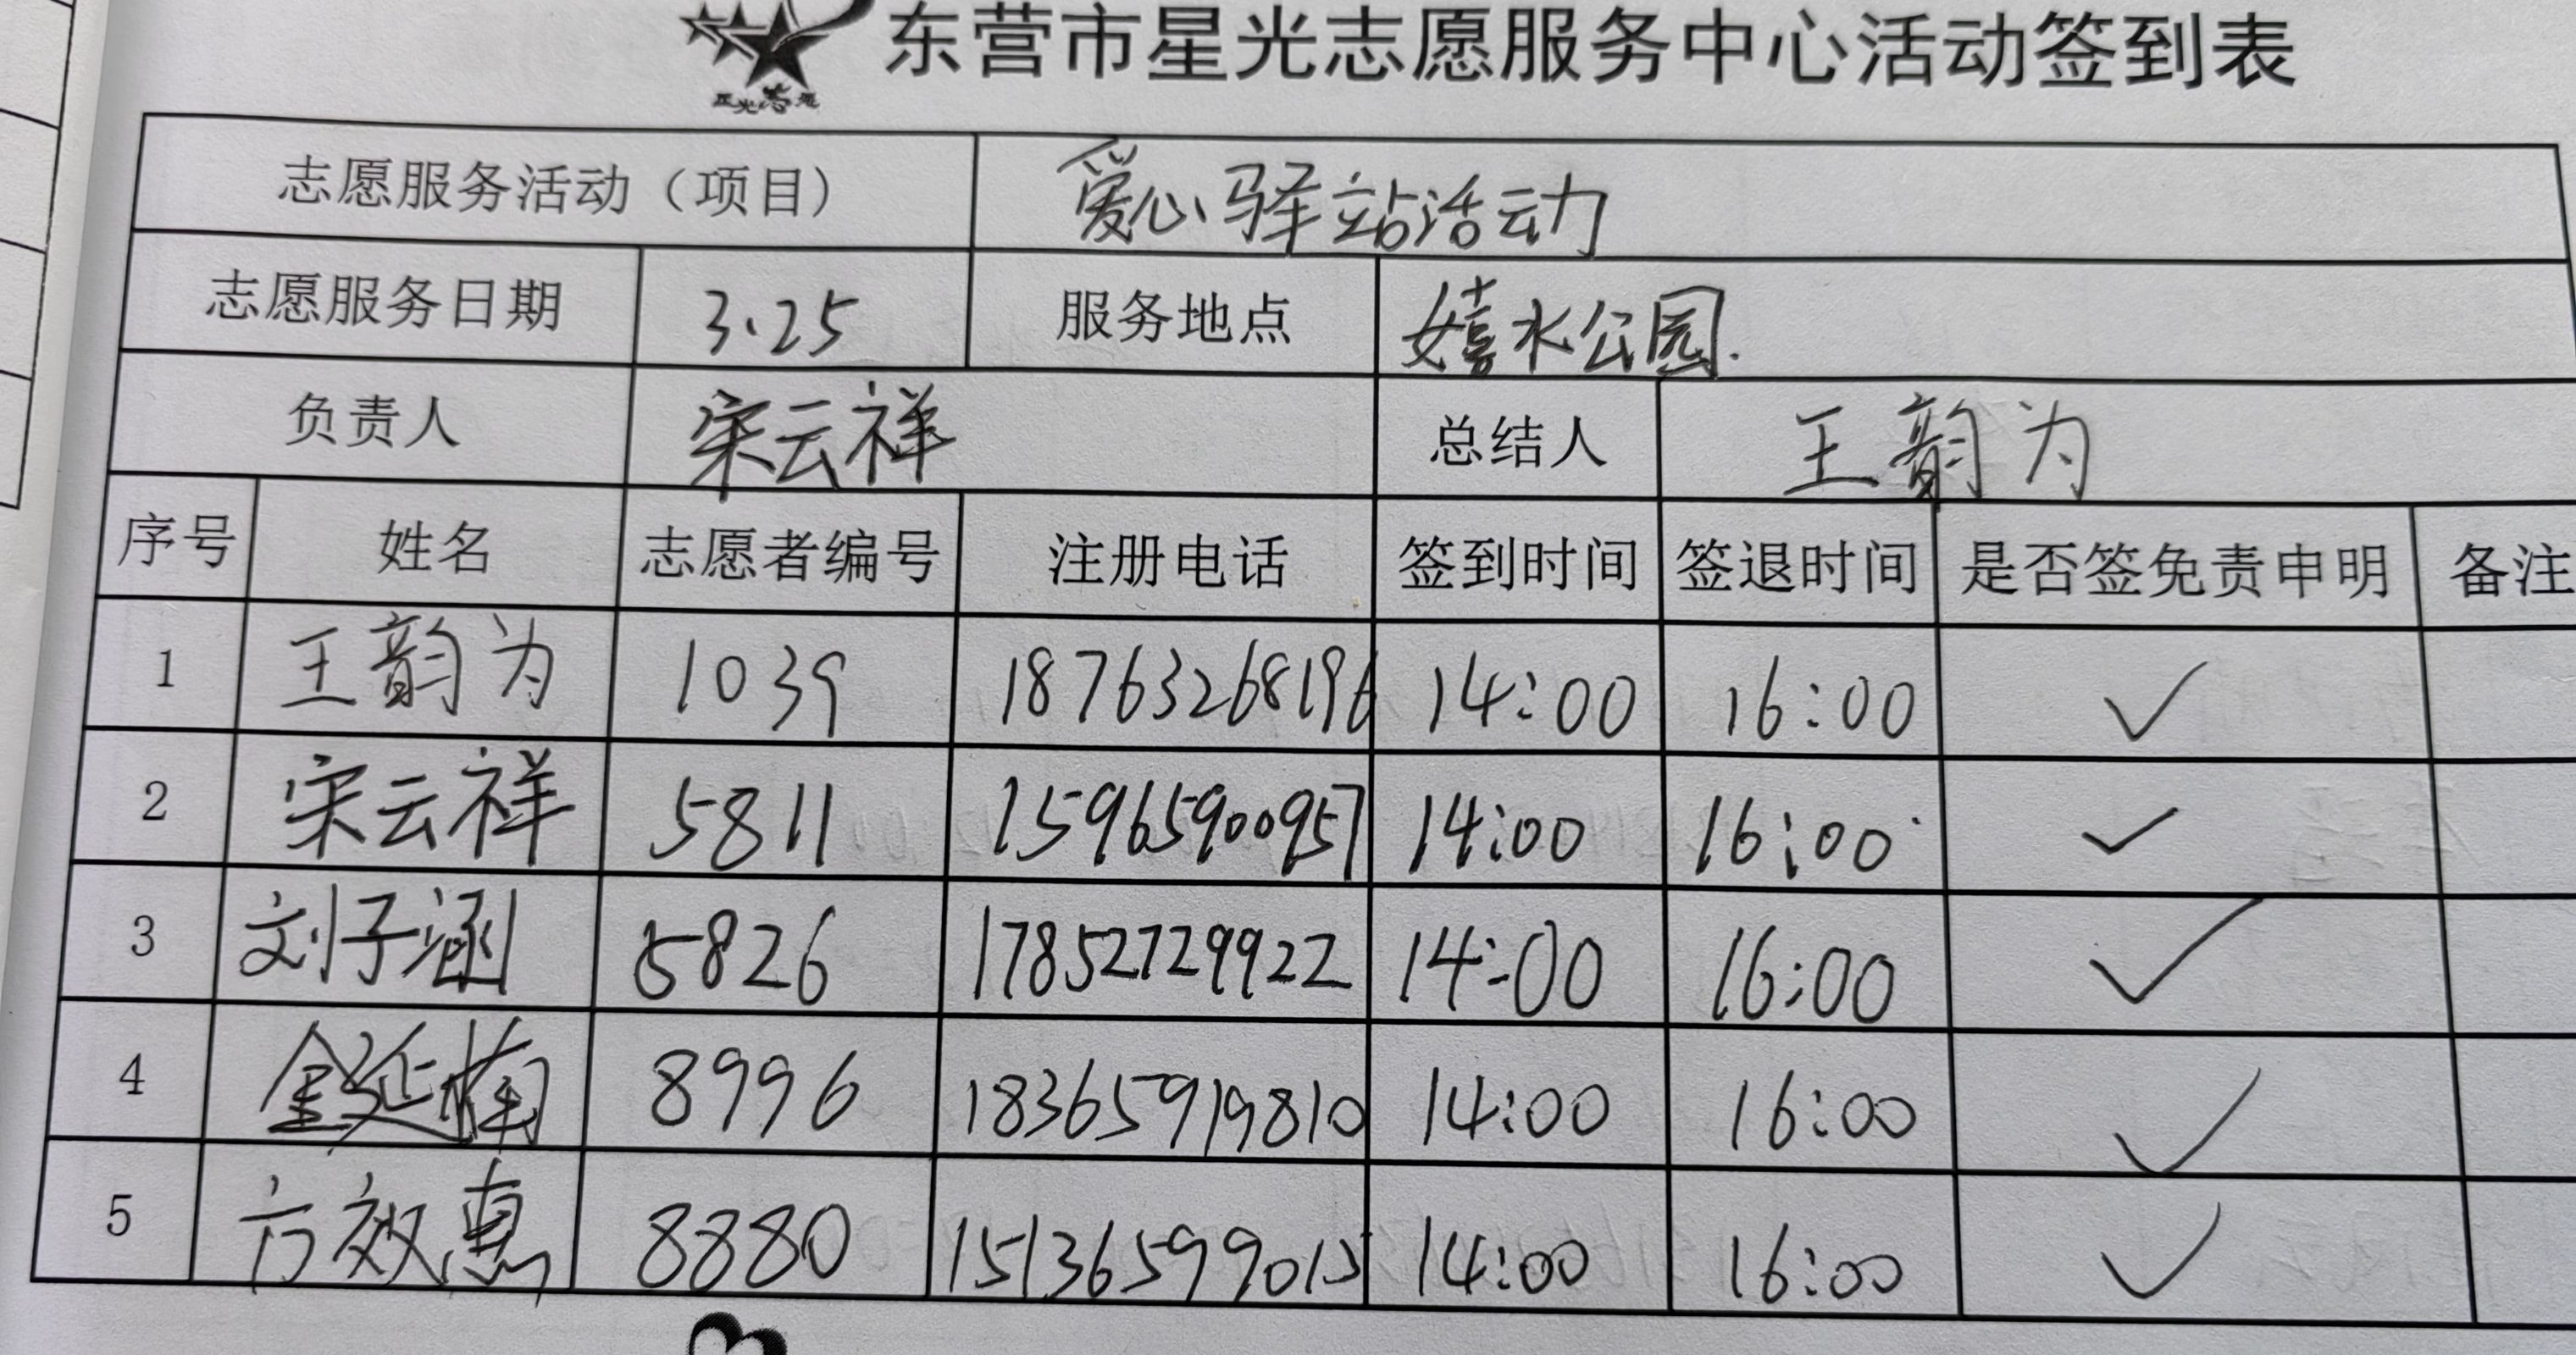 东营市星光志愿服务中心活动签到表
星光志愿
志愿服务活动（项目） 爱心驿站活动
志愿服务日期 3.25 服务地点 嬉水公园.
负责人 宋云祥 总结人 王韵为
序号 姓名 志愿者编号 注册电话 签到时间 签退时间 是否签免责申明 备注
1 王韵为 1039 18763268196 14:00 16:00 ✓
2 宋云祥 5811 15965900957 14:00 16:00 ✓
3 刘子涵 5826 17852729922 14:00 16:00 ✓
4 金延楠 8996 18365919810 14:00 16:00 ✓
5 方效惠 8880 15136599015 14:00 16:00 ✓